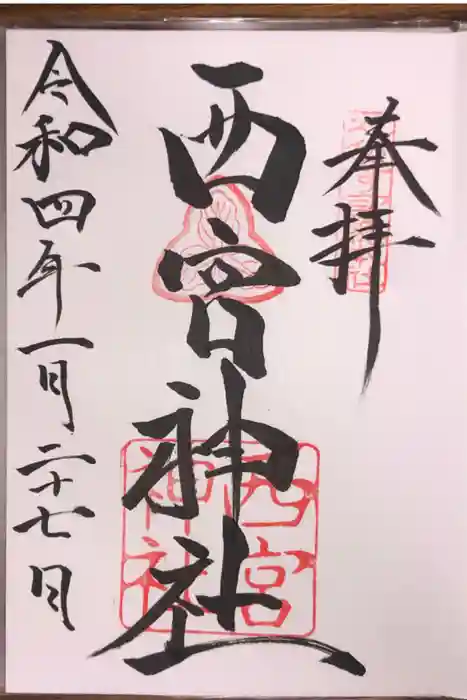 奉拝
西宮神社
西宮神社
令和四年一月二十七日